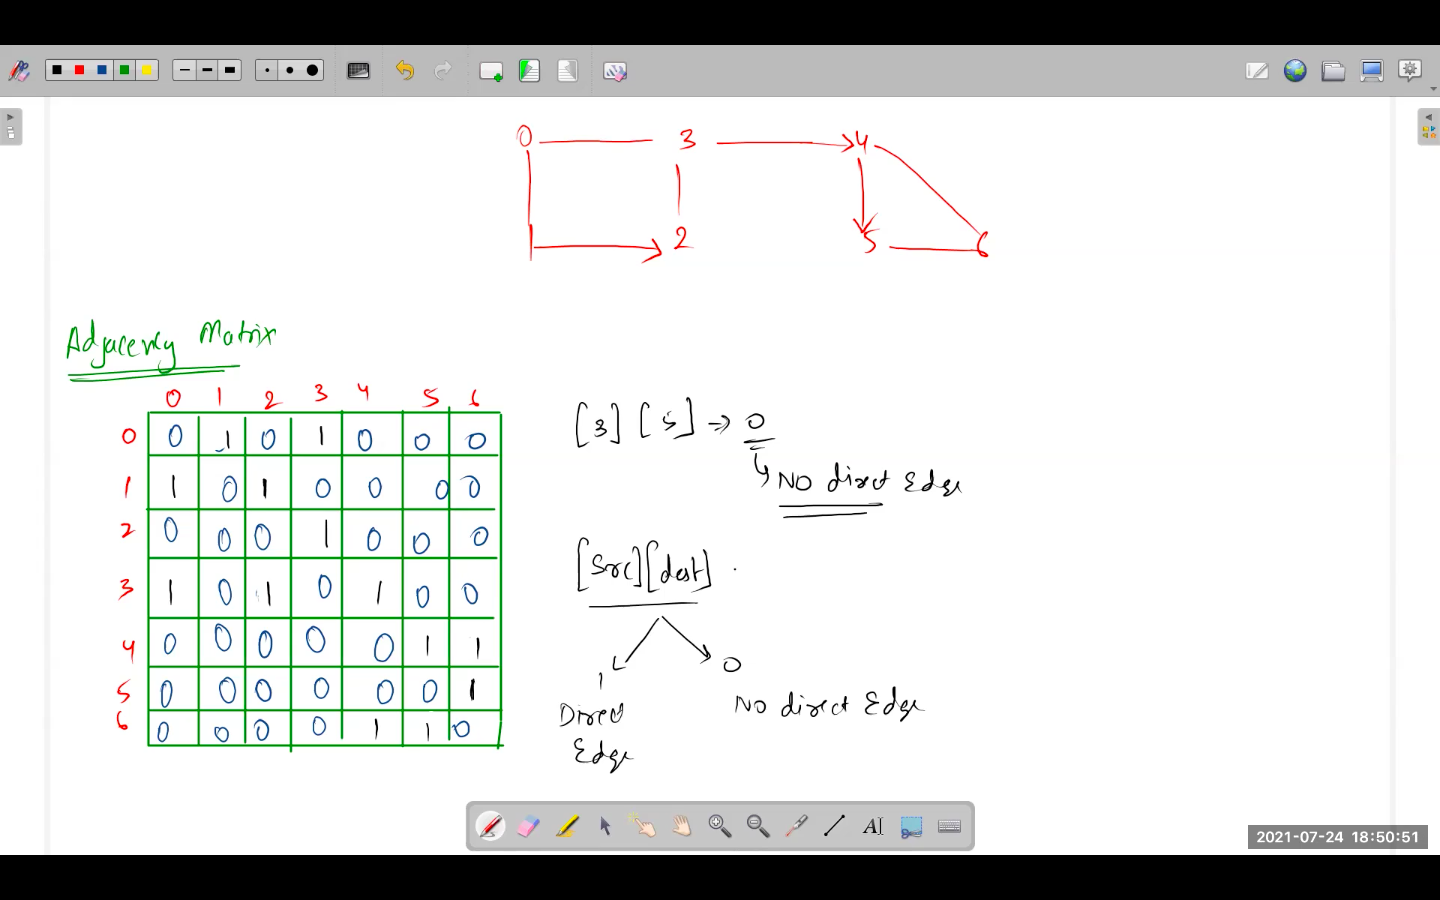 0 3 4
1 2 5 6
Adjacency Matrix
0 1 2 3 4 5 6
0 0 1 0 1 0 0 0
1 1 0 1 0 0 0 0
2 0 0 0 1 0 0 0
3 1 0 1 0 1 0 0
4 0 0 0 0 0 1 1
5 0 0 0 0 0 0 1
6 0 0 0 0 1 1 0
[3] [5] => 0
NO direct Edge
[Src][dest]
1 0
Direct
Edge
NO direct Edge
AI
2021-07-24 18:50:51